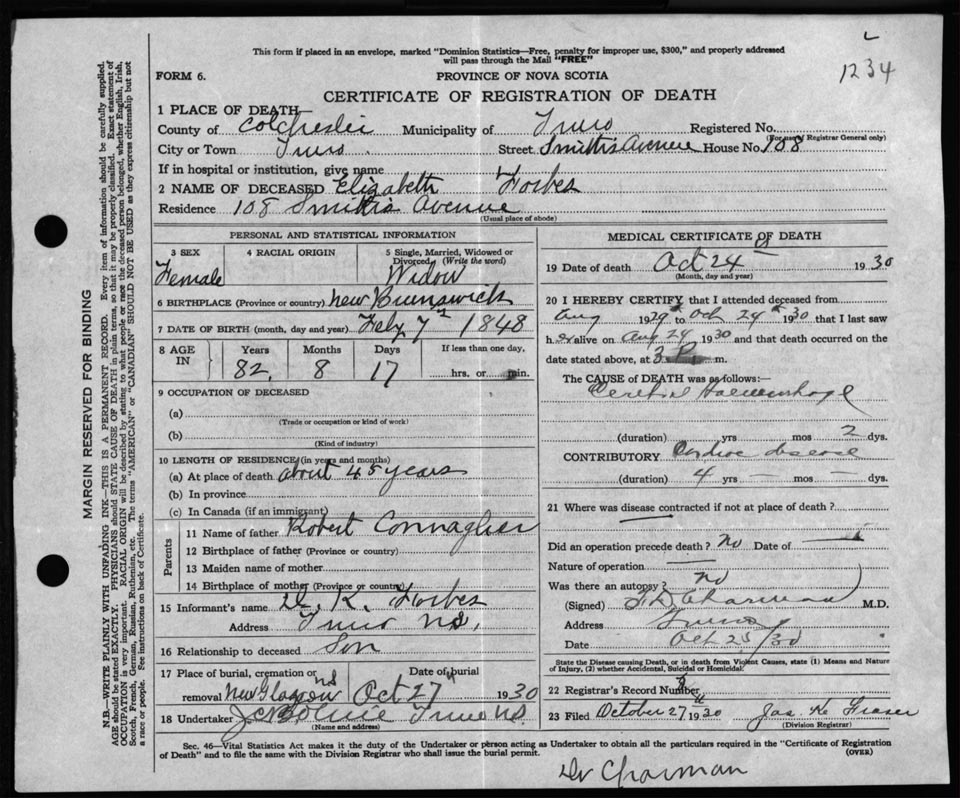 1234
This form if placed in an envelope, marked "Dominion Statistics—Free, penalty for improper use, $300," and properly addressed
will pass through the Mail "FREE"
FORM 6.
PROVINCE OF NOVA SCOTIA
CERTIFICATE OF REGISTRATION OF DEATH
1 PLACE OF DEATH—
County of Colchester Municipality of Truro Registered No.
(For use of Registrar General only)
City or Town Truro Street Smith's Avenue House No. 108
If in hospital or institution, give name
2 NAME OF DECEASED Elizabeth Forbes
Residence 108 Smith's Avenue
(Usual place of abode)
PERSONAL AND STATISTICAL INFORMATION
3 SEX Female
4 RACIAL ORIGIN
5 Single, Married, Widowed or Divorced (Write the word) Widow
6 BIRTHPLACE (Province or country) New Brunswick
7 DATE OF BIRTH (month, day and year) Feby 7th 1848
8 AGE IN Years Months Days If less than one day,
82 8 17 hrs. or min.
9 OCCUPATION OF DECEASED
(a)
(Trade or occupation or kind of work)
(b)
(Kind of industry)
10 LENGTH OF RESIDENCE (in years and months)
(a) At place of death about 45 years
(b) In province
(c) In Canada (if an immigrant)
Parents
11 Name of father Robert
12 Birthplace of father (Province or country)
13 Maiden name of mother
14 Birthplace of mother (Province or country)
15 Informant's name K. Forbes
Address Truro NS.
16 Relationship to deceased Son
17 Place of burial, cremation or removal New Glasgow NS Date of burial Oct 27 1930
18 Undertaker Truro NS.
(Name and address)
MEDICAL CERTIFICATE OF DEATH
19 Date of death Oct 24 1930
(Month, day and year)
20 I HEREBY CERTIFY that I attended deceased from
Aug 1929 to Oct 24th 1930 that I last saw
her alive on Aug 24 1930 and that death occurred on the
date stated above, at 3 P. m.
The CAUSE of DEATH was as follows:—
Cerebral Haemorrhage
(duration) yrs. mos 2 dys.
CONTRIBUTORY Cardiac disease
(duration) 4 yrs — mos — dys.
21 Where was disease contracted if not at place of death?
Did an operation precede death? No Date of —
Nature of operation —
Was there an autopsy? no
(Signed) Charman M.D.
Address Truro
Date Oct 25/30
State the Disease causing Death, or in death from Violent Causes, state (1) Means and Nature
of Injury, (2) whether Accidental, Suicidal or Homicidal.
22 Registrar's Record Number
23 Filed October 27 1930 Jas K Fraser
(Division Registrar)
Sec. 46—Vital Statistics Act makes it the duty of the Undertaker or person acting as Undertaker to obtain all the particulars required in the "Certificate of Registration
of Death" and to file the same with the Division Registrar who shall issue the burial permit. (OVER)
Dr Charman
MARGIN RESERVED FOR BINDING
N.B.—WRITE PLAINLY WITH UNFADING INK—THIS IS A PERMANENT RECORD. Every item of information should be carefully supplied.
AGE should be stated EXACTLY. PHYSICIANS should STATE CAUSE OF DEATH in plain terms, so that it may be properly classified. Exact statement of
OCCUPATION is very important. RACIAL ORIGIN will be described by stating to what people or race the deceased person belonged, whether English, Irish,
Scotch, French, German, Russian, Ruthenian, etc. The terms "AMERICAN" or "CANADIAN" SHOULD NOT BE USED as they express citizenship but not
a race or people. See instructions on back of Certificate.